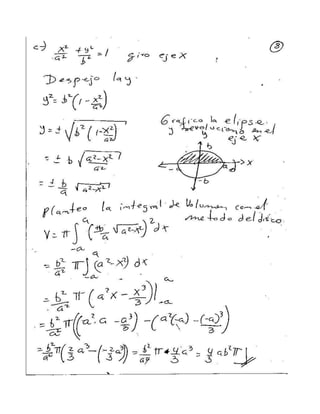 ③
c-) x²/a² + y²/b² = 1 giro eje x
Despejo la y.
y² = b²(1 - x²/a²)
y = ± √b²(1 - x²/a²)
Grafico la elipse
y revoluciono en el
eje x
= ± b √a²-x²/a²
b
x
-a
-b
= ± b/a √a²-x²
Planteo la integral de volumen con el
metodo del disco
V = π ∫ₐ₋ₐ (±b/a √a²-x²)² dx
= b²/a² π ∫ᵃ₋ₐ (a²-x²) dx
= b²/a² π (a²x - x³/3) |ᵃ₋ₐ
= b²/a² π ((a².a - a³/3) - (a²(-a) - (-a)³/3)
= b²/a² π (2/3 a³ - (-2/3 a³)) = b²/a² π • 4/3 a³ = 4/3 ab²π